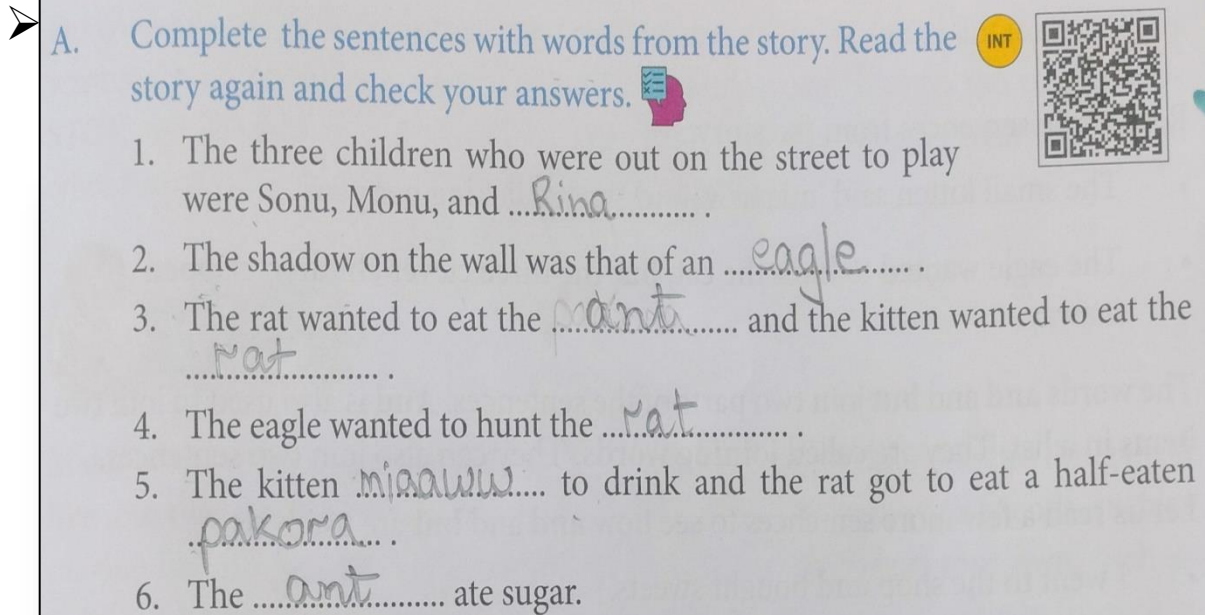 A. Complete the sentences with words from the story. Read the INT
story again and check your answers.
1. The three children who were out on the street to play
were Sonu, Monu, and ...Rina........... .
2. The shadow on the wall was that of an .....eagle...... .
3. The rat wanted to eat the ....ant...... and the kitten wanted to eat the
rat .
4. The eagle wanted to hunt the ...rat.............. .
5. The kitten miaaww.... to drink and the rat got to eat a half-eaten
pakora .
6. The ....ant.......... ate sugar.